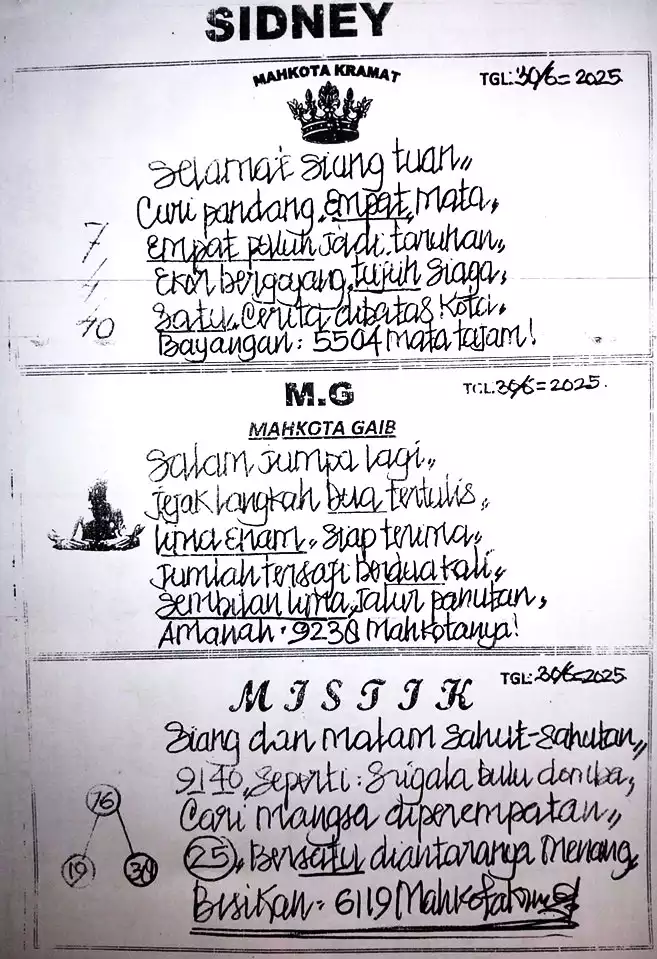 SIDNEY
MAHKOTA KRAMAT
TGL: 30/6= 2025
Selamat siang tuan,,
Curi pandang, empat, mata,
7, empat puluh jadi taruhan,
1, Ekor bergoyang, tujuh siaga,
40 Satu,, Cerita dibatas Kota,
Bayangan: 5504 mata tajam!
M.G
TGL: 30/6=2025.
MAHKOTA GAIB
Salam jumpa lagi,,
jejak langkah Dua tertulis,,
lima Enam,, siap terima,,
jumlah tersaji berdua kali,,
Sembilan lima, jalur panutan,
Amanah. 9238 Mahkotanya!
MISTIK
TGL: 30/6=2025
Siang dan malam sahut-sahutan,,
9140, seperti: Srigala bulu domba,
76 Cari mangsa diperempatan,,
19 30 25,, Bersatu diantaranya menang,
Bisikan = 6119